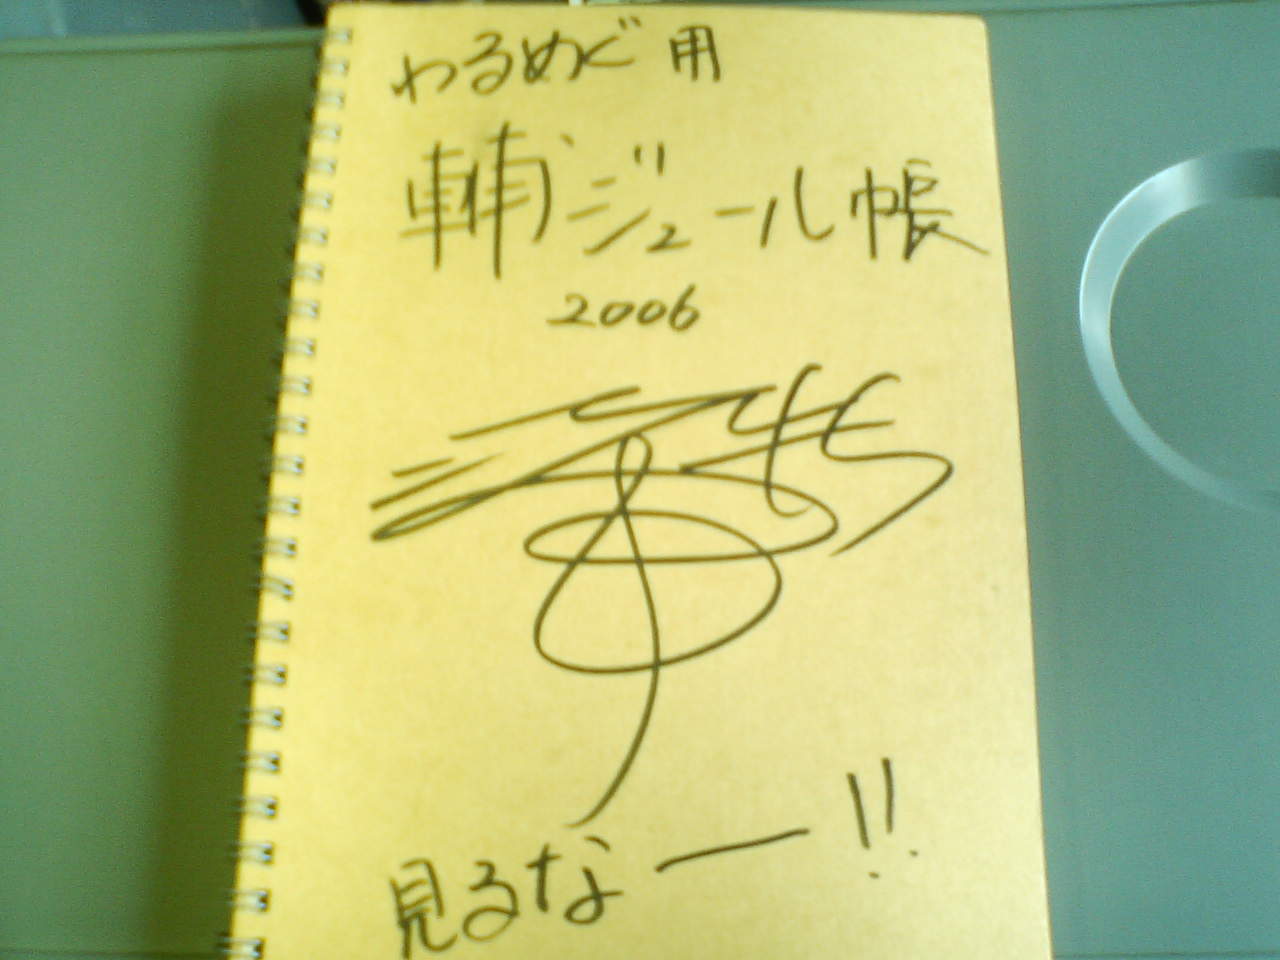 わるめぐ用
輔ジュール帳
2006
見るなー!!